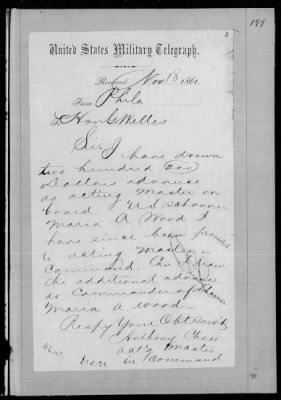 199
United States Military Telegraph.
Received Nov 18 1861.
From Phila
To Hon G Welles
Sir I have drawn
two hundred (200)
Dollars advance
as acting Master on
board U S schooner
Maria A Wood I
have since been promoted
to acting Master in
Command. Can I draw
the additional advance
as Commander of
Maria A Wood.
Respy Your Obt Servt
Anthony Chase
Actg Master
in Command